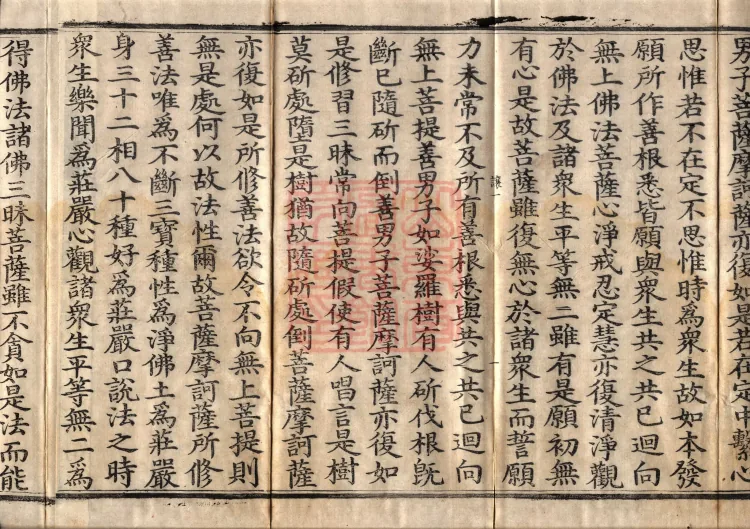 男子菩薩摩訶薩亦復如是若在定中繫心
思惟若不在定不思惟時為衆生故如本發
願所作善根悉皆願與衆生共之共已迴向
無上佛法菩薩心淨戒忍定慧亦復清淨觀
於佛法及諸衆生平等無二雖有是願初無
有心是故菩薩雖復無心於諸衆生而誓願
力未常不及所有善根悉與共之共已迴向
無上菩提善男子如娑羅樹有人斫伐根旣
斷已隨斫而倒善男子菩薩摩訶薩亦復如
是修習三昧常向菩提假使有人唱言是樹
莫斫處隨是樹猶故隨斫處倒菩薩摩訶薩
亦復如是所修善法欲令不向無上菩提則
無是處何以故法性爾故菩薩摩訶薩所修
善法唯爲不斷三寶種性爲淨佛土爲莊嚴
身三十二相八十種好爲莊嚴口說法之時
衆生樂聞爲莊嚴心觀諸衆生平等無二爲
得佛法諸佛三昧菩薩雖不貪如是法而能